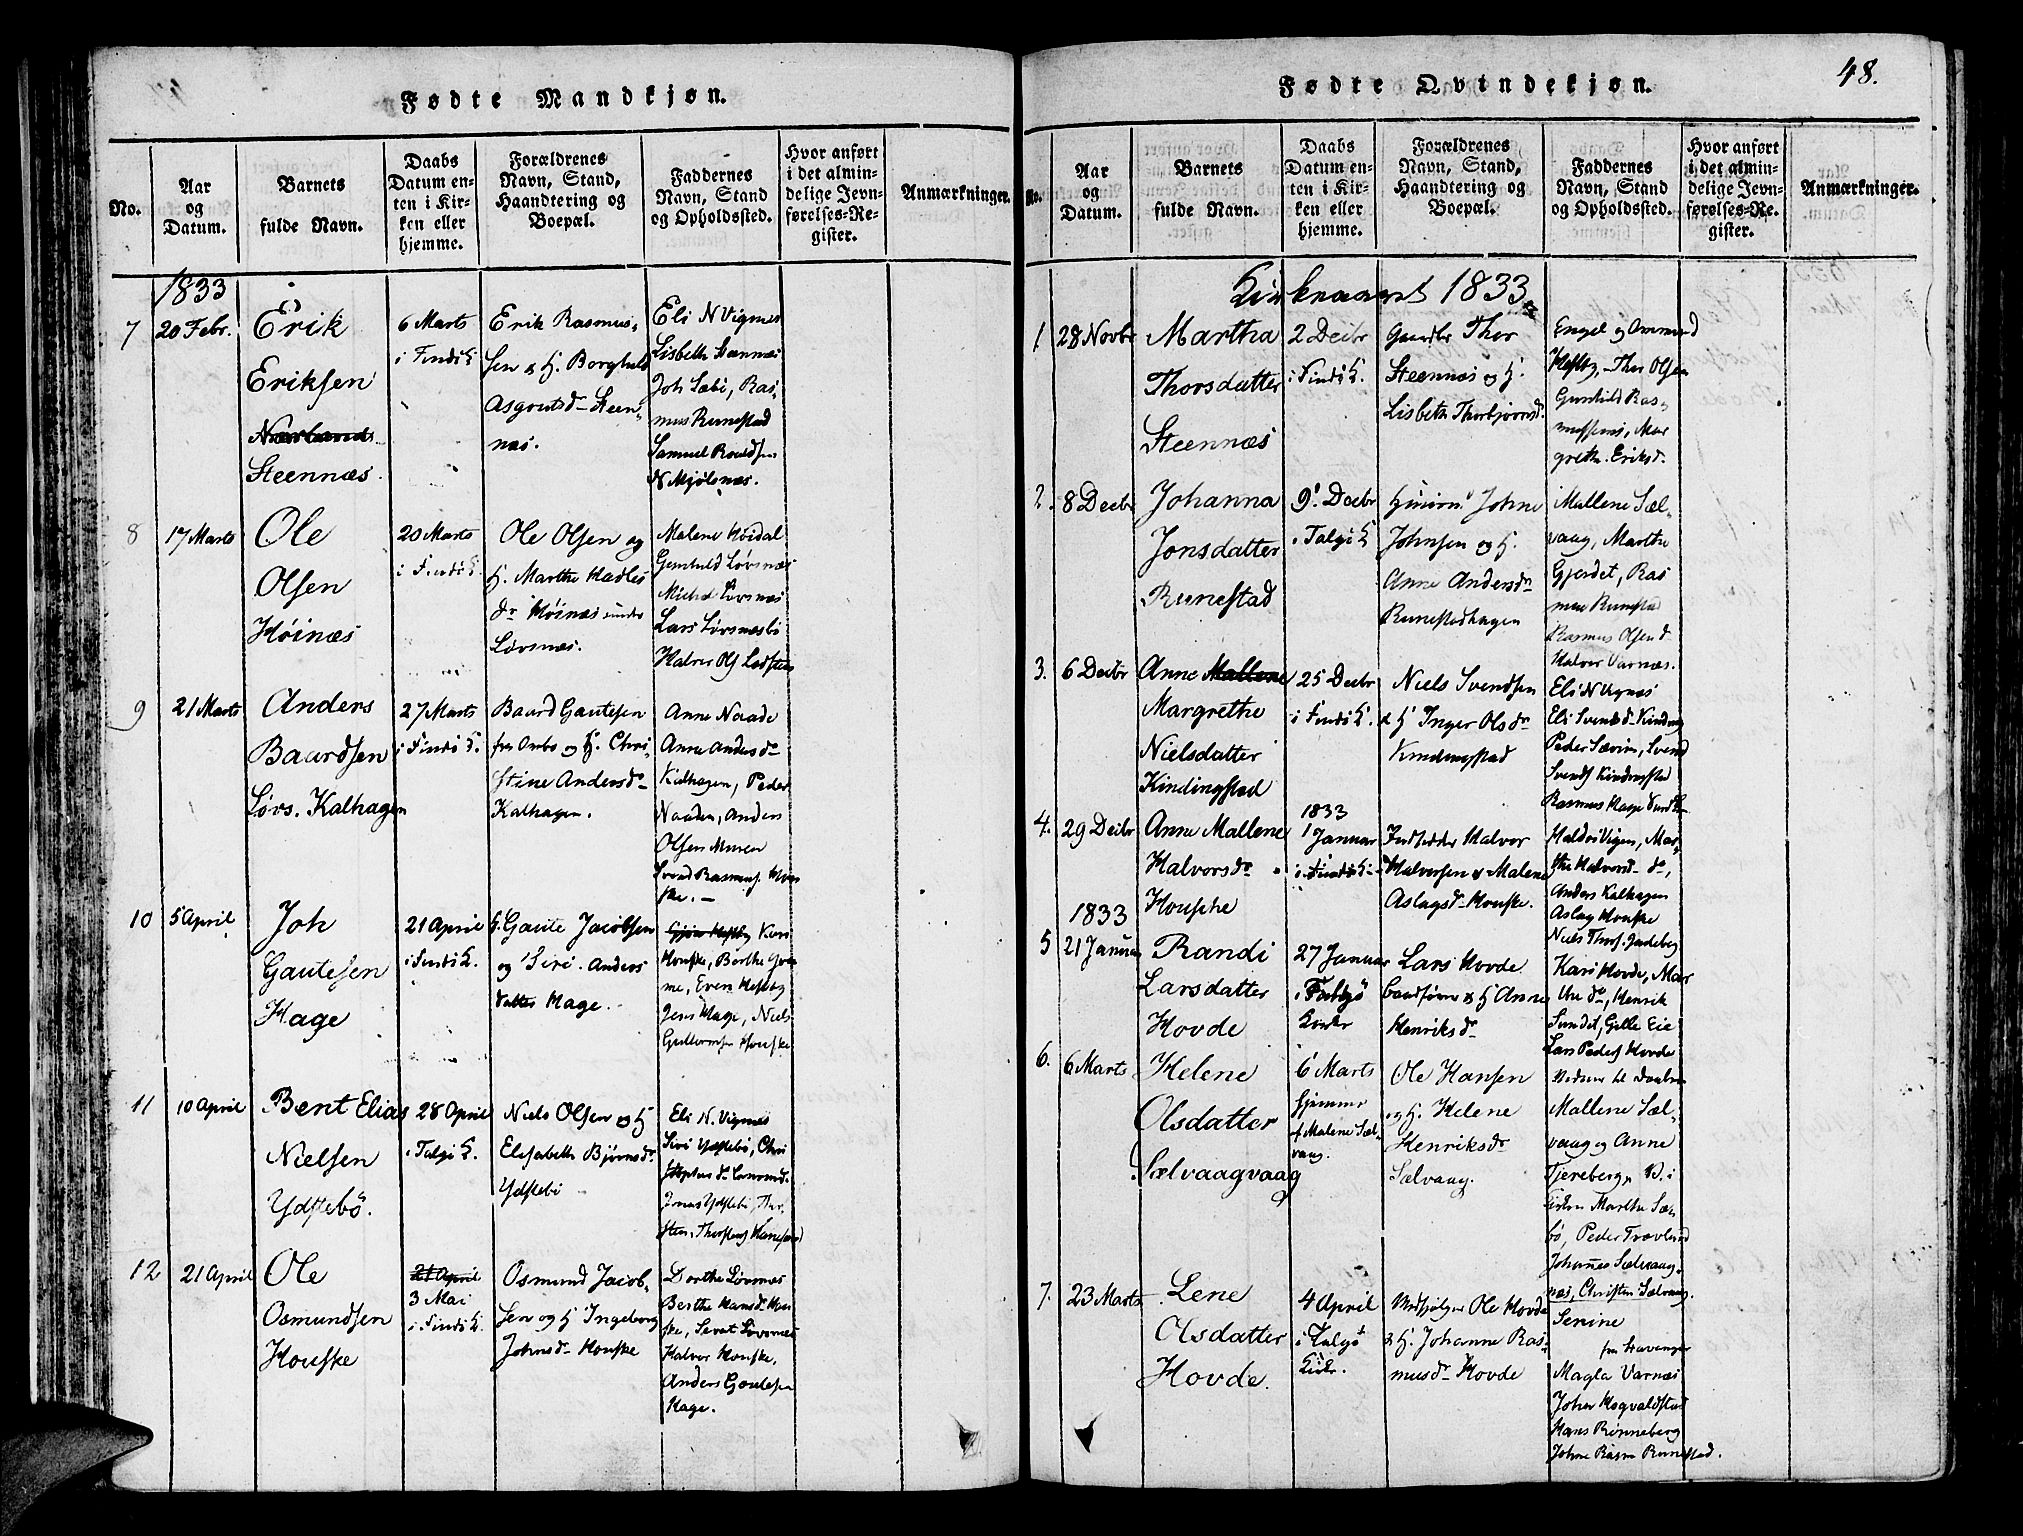 Fødte Mandkjøn.
No.
Aar
og
Datum.
Barnets
fulde Navn.
Daabs
Datum en-
ten i Kir-
ken eller
hjemme.
Forældrenes
Navn, Stand,
Haandtering og
Boepæl.
Faddernes
Navn, Stand
og Opholdssted.
Hvor anført
i det almin-
delige Jevn-
førelses-Re-
gister.
Anmærkninger.
1833
7
20 Febr.
Erik
Eriksen
Steennæs.
6 Marts
i Findö K
Erik Rasmus-
sen & H. Borghild
Asgoutsd. Steen-
næs.
Eli N Vignes
Lisbeth Steennæs
Joh Sæbö, Ras-
mus Runestad
Samuel
N Mjölsnæs.
8
17 Marts
Ole
Olsen
Höinæs
20 Marts
i Findö K.
Ole Olsen og
H. Marthe Hadles
dr Höinæs under
Lövsnæs.
Malene Höidal
Gunhild Lövsnæs
Michel Lövsnæs
Lars Lövsnæsbö
Halvor Ols
9
21 Marts
Anders
Baardsen
Lövs. Kalhagen
27 Marts
i Findö K.
Baard Gautesen
fra Onbo og H. Chri-
stine Andersdr
Kalhagen.
Anne Naade
Anne Andersdr
Kalhagen, Peder
Naaden, Anders
Olsen
Svend Rasmus. Hou
ske. —
10
5 April
Joh
Gautesen
Hage
21 April
i Findö K.
H. Gaute Jacobsen
og Siri Anders
datter Hage.
Kari
Houske, Berthe
Even Hestby
Jens Hage, Niels
Houske
11
10 April
Bent Elias
Nielsen
Ydstebö.
28 April
i Talgö K.
Niels Olsen og H
Elisabeth Björnsdr
Ydstebö
Eli N. Vignes
Siri Ydstebö, Chri
Jonas Ydstebö, Thor
sten
12
21 April
Ole
Osmundsen
Houske
21 April
3 Mai
i Findö K.
Osmund Jacob-
sen og H Ingeborg
Johnsdr Houske
Dorthe Lövsnæs
Berthe Hansdr Hou
ske, Sevat Lövsnæs
Halvor Houske,
Anders Goutesen
Hage.
48.
Fødte Qvindekjøn.
No.
Aar
og
Datum.
Barnets
fulde Navn.
Daabs
Datum en-
ten i Kir-
ken eller
hjemme.
Forældrenes
Navn, Stand,
Haandtering og
Boepæl.
Faddernes
Navn, Stand
og Opholdssted.
Hvor anført
i det almin-
delige Jevn-
førelses-Re-
gister.
Anmærkninger.
Kirkeaaret 1833
1
28 Novbr
Martha
Thorsdatter
Steennæs
2 Decbr
i Findö K.
Gaardbr Thor
Steennæs og H.
Lisbeth Thorbjörnsd.
Engel og Ommund
Hestby, Thor Olsen
Gunhild Ras-
Mar
grethe Eriksdr
2.
8 Decbr
Johanna
Jonsdatter
Runestad
9 Decbr
i Talgö K
Johne
Johnsen og H.
Anne Andersdr
Runestadhagen
Mallene Sæl-
vaag, Marthe
Gjerdet, Ras
mus Runestad
Rasmus Olsen
Halvor Varnæs.
3.
6 Decbr
Anne Mallene
Margrethe
Nielsdatter
Kindingstad
25 Decbr
i Findö K.
Niels Svendsen
& H Inger Olsdr
Kindingstad
Eli N Vignæs
Eli Svendsdr Kinding
Peder Sævim, Svend
Svends Kindingstad
Rasmus Hage
4.
29 Decbr
Anne Mallene
Halvorsdr
Houske
1833
1 Januar
i Findö K
Halvor
Halvorsen & Malene
Aslagsdr Houske.
Vigen, Mar-
the Halvorsdr do,
Anders Kalhagen
Aslag Houske
Niels Thors. Judeberg
1833
5
21 Januar
Randi
Larsdatter
Hovde
27 Januar
i Talgö
Kirke
Lars Hovde
& H Anne
Henriksdr
Kari Hovde, Mar
the do, Henrik
Sundet, Gille Eie
Lars Peders Hovde
6.
6 Marts
Helene
Olsdatter
Sælvaagvaag
6 Marts
hjemme
af Malene Sæl-
vaag.
Ole Hansen
og H. Helene
Henriksdr
Sælvaag.
Mallene Sæl-
vaag og Anne
Tjereberg, N. i
Marthe Sæ
bö, Peder Trævland
Johannes Sælvaag
Christen Sælvaag.
7.
23 Marts
Lene
Olsdatter
Hovde.
4 April
i Talgö
Kirke.
Ole Hovde
& H. Johanne Ras-
musdr Hovde
Serine
fra Stavanger
Magla Varnæs
Hans Rönneberg
Johne Rasm Runestad.